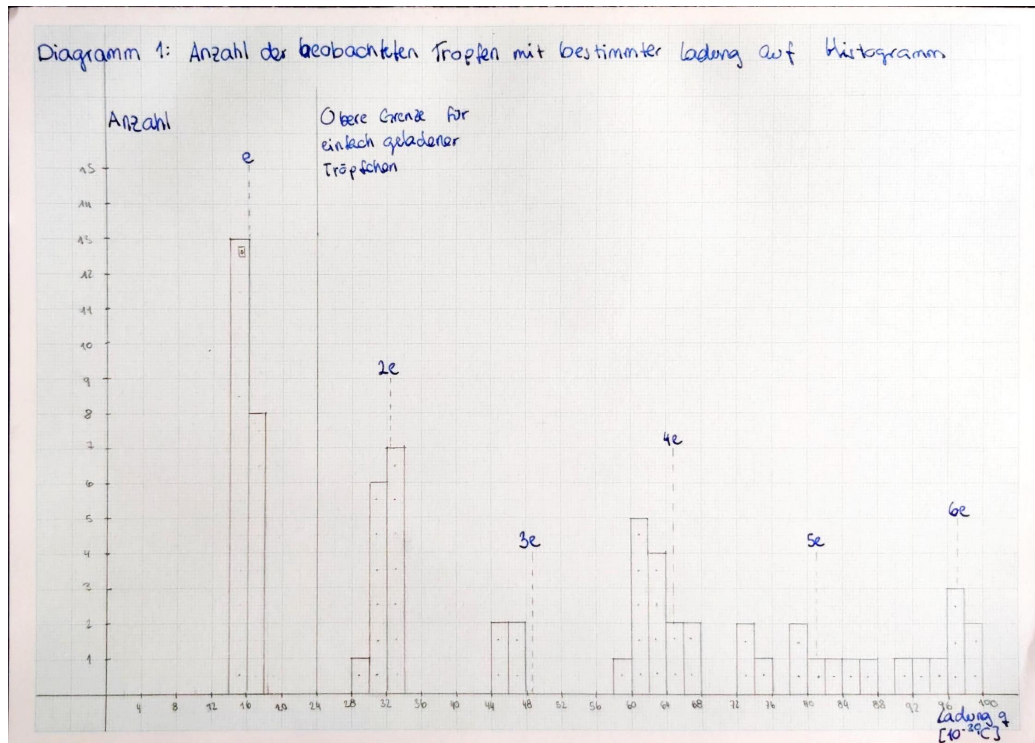 Diagramm 1: Anzahl der beobachteten Tropfen mit bestimmter Ladung auf Histogramm
Anzahl
Obere Grenze für
einfach geladener
Tröpfchen
e
15
14
13
12
11
10
9
8
7
6
5
4
3
2
1
2e
3e
4e
5e
6e
4 8 12 16 20 24 28 32 36 40 44 48 52 56 60 64 68 72 76 80 84 88 92 96 100
Ladung q
[10⁻²⁰C]